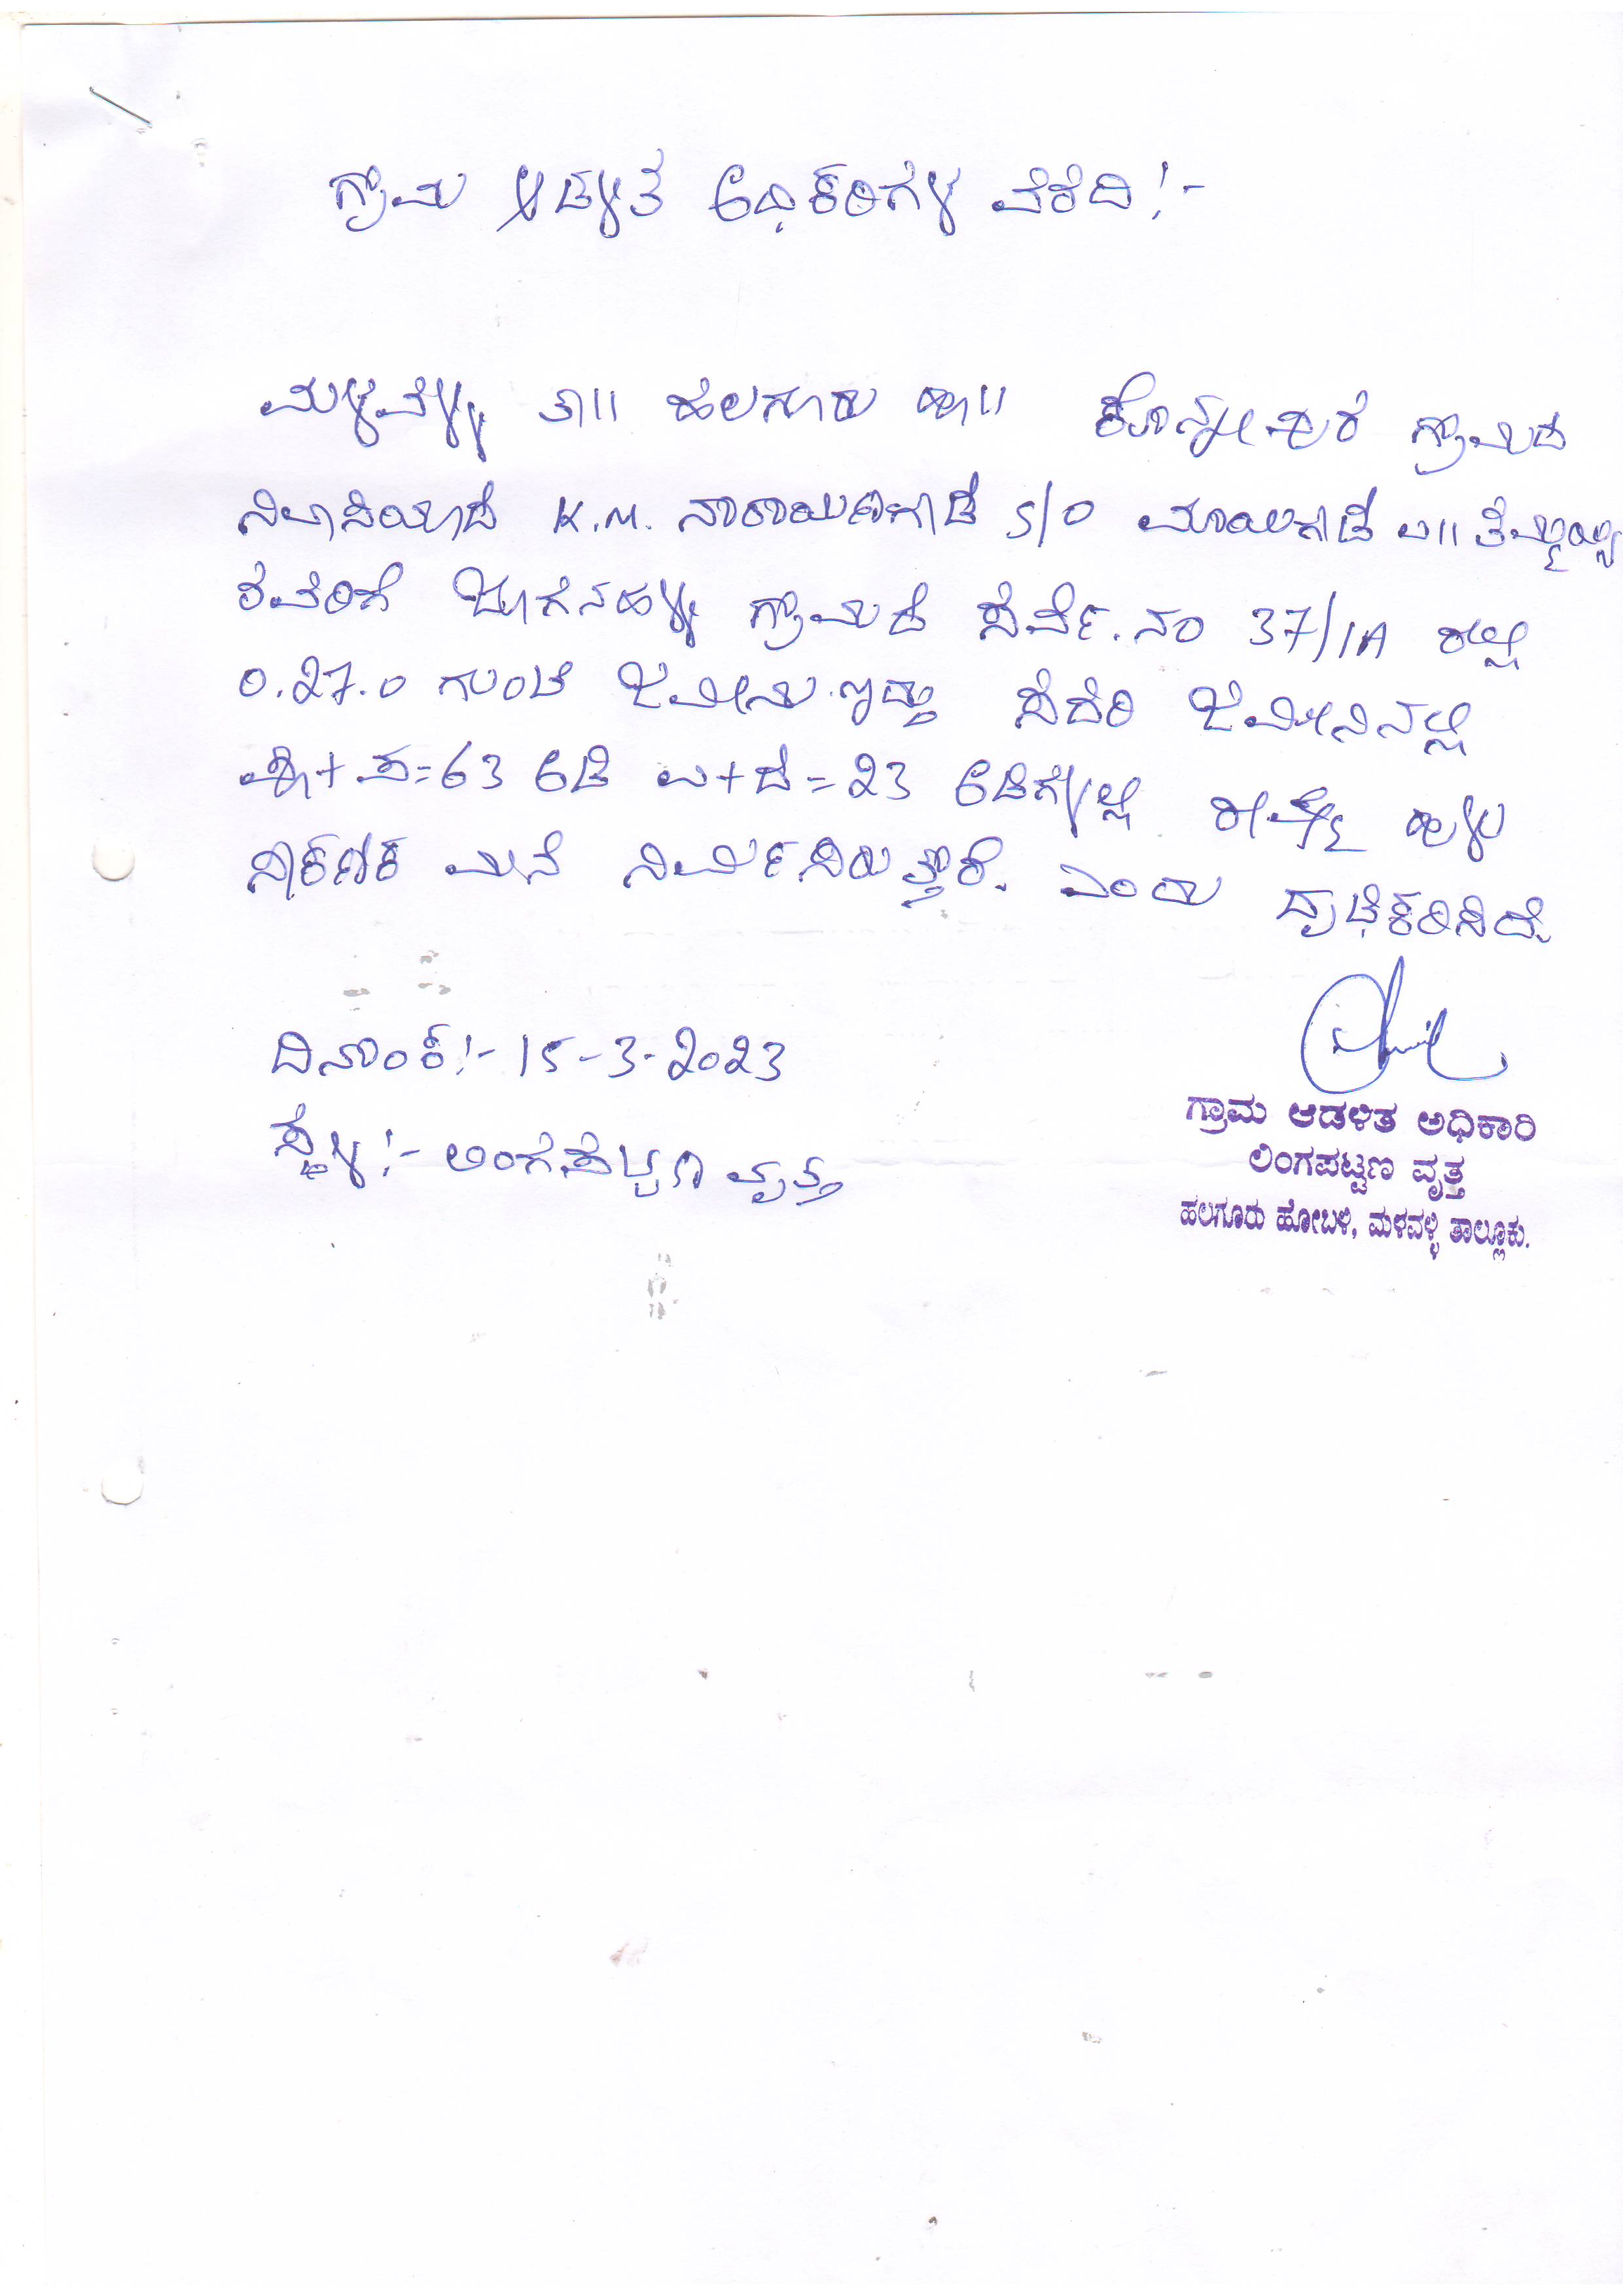 ಗ್ರಾಮ ಆಡಳಿತ ಅಧಿಕಾರಿಗಳ ವರದಿ:-
ಮಳವಳ್ಳಿ ತಾ॥ ಹಲಗೂರು ಹೋ॥ ಗ್ರಾಮದ
ನಿವಾಸಿಯಾದ K.M. ನಾರಾಯಣಗೌಡ S/O ಮಾಯಿಗೌಡ ಬಿ॥
ರವರಿಗೆ ಬ್ಯಾಗನಹಳ್ಳಿ ಗ್ರಾಮದ ಸರ್ವೆ.ನಂ 37/1A ರಲ್ಲಿ
0.27.0 ಗುಂಟೆ ಜಮೀನು ಇದ್ದು ಸದರಿ ಜಮೀನಿನಲ್ಲಿ
ಪೂ+ಪ=63 ಅಡಿ ಉ+ದ=23 ಅಡಿಗಳಲ್ಲಿ ರೇಷ್ಮೆ ಹುಳು
ಸಾಕಣಿಕೆ ಮನೆ ನಿರ್ಮಿಸಿರುತ್ತಾರೆ. ಎಂದು ದೃಢಿಕರಿಸಿದೆ.
ದಿನಾಂಕ:- 15-3-2023
ಸ್ಥಳ:- ಲಿಂಗಪಟ್ಟಣ ವೃತ್ತ
ಗ್ರಾಮ ಆಡಳಿತ ಅಧಿಕಾರಿ
ಲಿಂಗಪಟ್ಟಣ ವೃತ್ತ
ಹಲಗೂರು ಹೋಬಳಿ, ಮಳವಳ್ಳಿ ತಾಲ್ಲೂಕು.